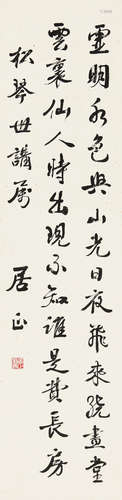 虛明水色與山光日夜飛來繞畫堂
雲裏仙人時出現不知誰是費長房
松琴世講屬
居正